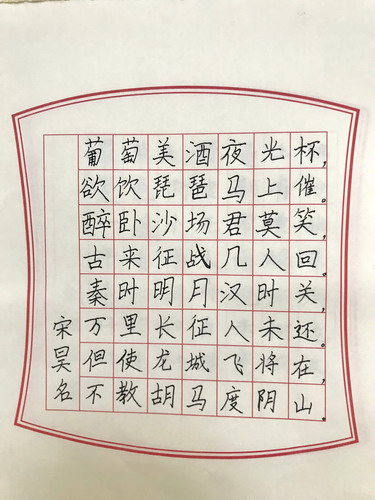 葡萄美酒夜光杯，
欲饮琵琶马上催。
醉卧沙场君莫笑，
古来征战几人回。
秦时明月汉时关，
万里长征人未还。
但使龙城飞将在，
不教胡马度阴山。
宋昊名